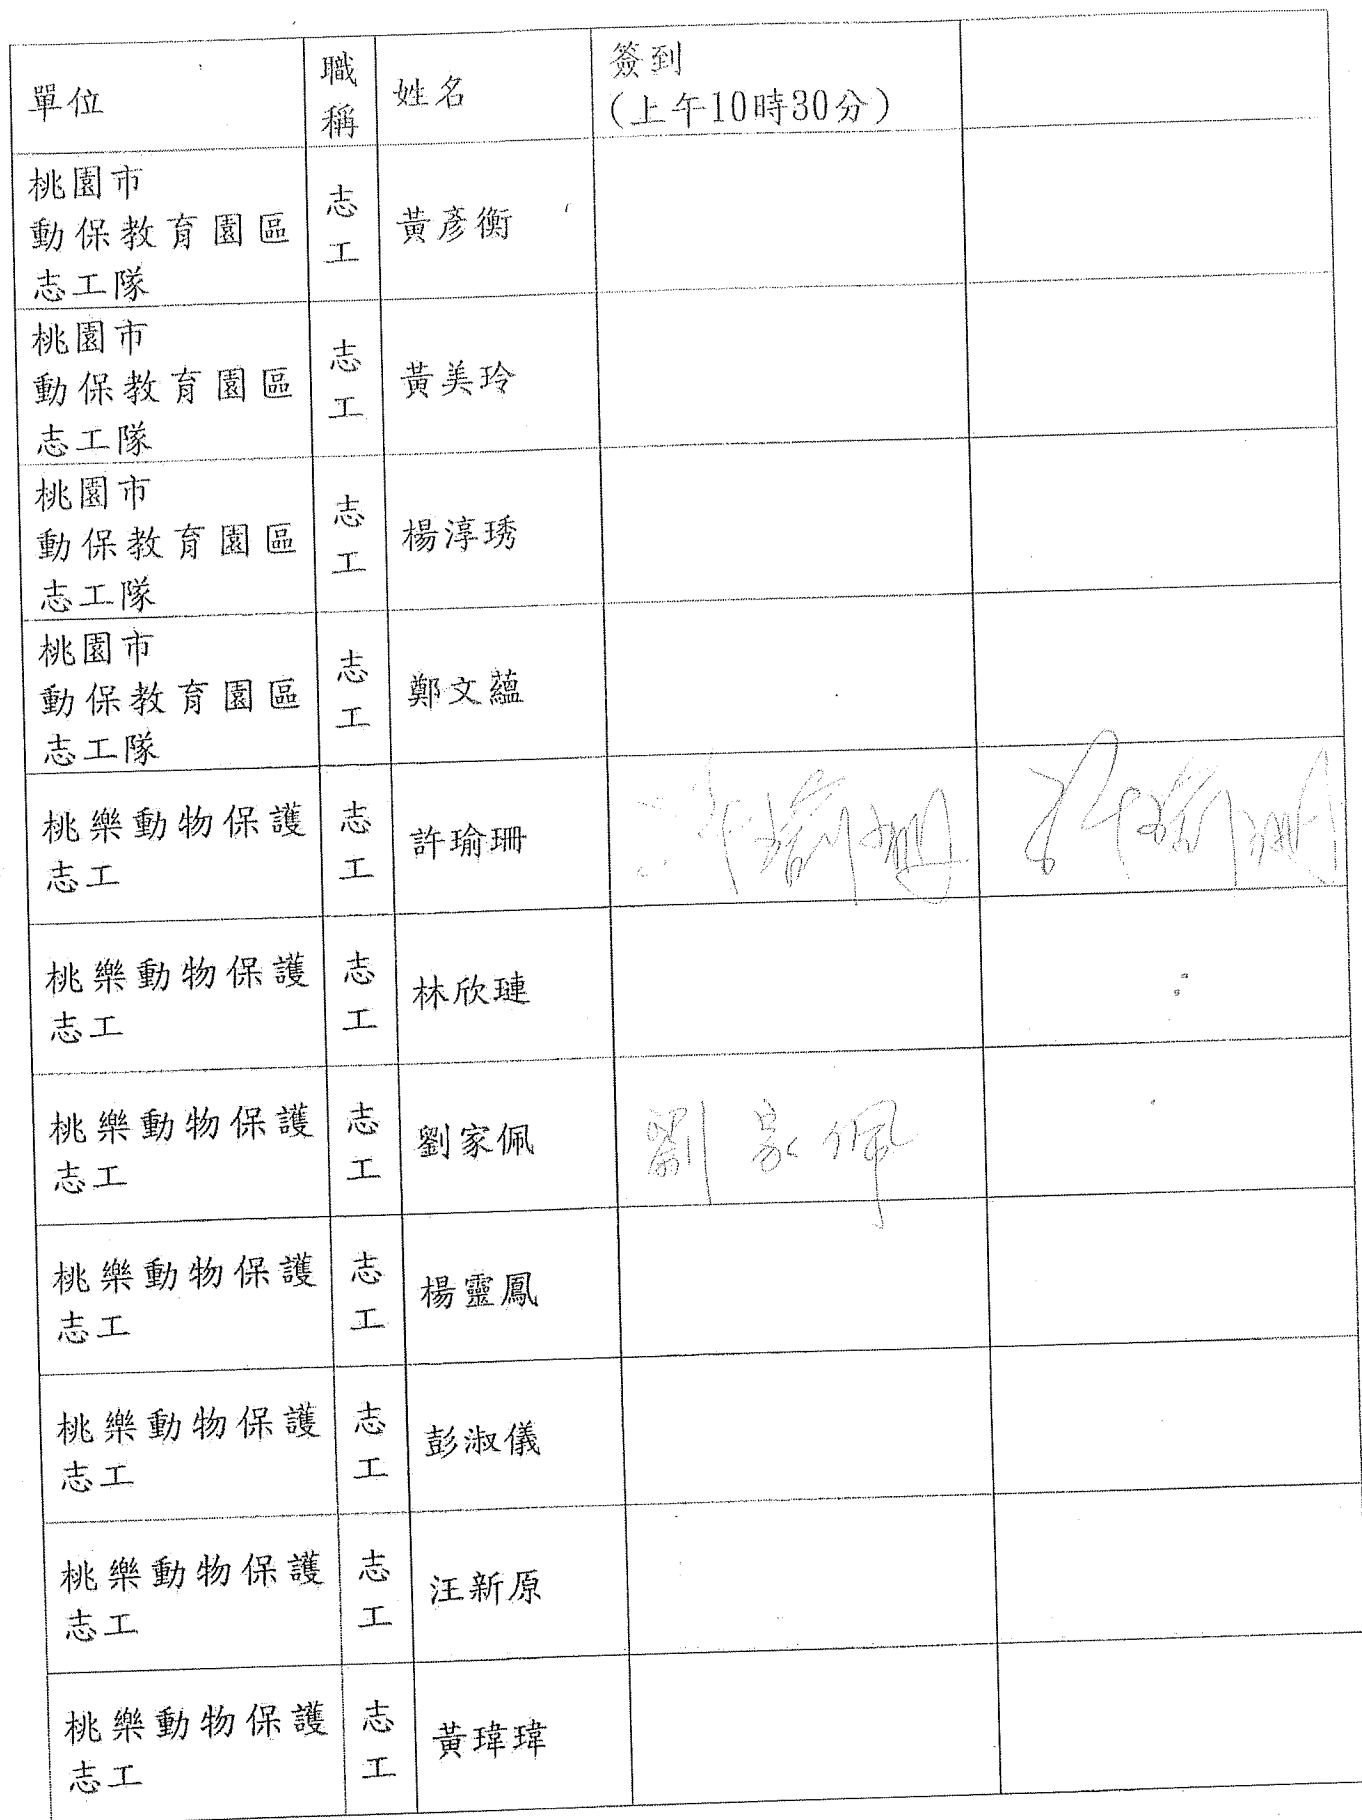 單位
職
稱
姓名
簽到
(上午10時30分)
桃園市
動保教育園區
志工隊
志
工
黃彥衡
桃園市
動保教育園區
志工隊
志
工
黃美玲
桃園市
動保教育園區
志工隊
志
工
楊淳琇
桃園市
動保教育園區
志工隊
志
工
鄭文蘊
桃樂動物保護
志工
志
工
許瑜珊
許瑜珊
許瑜珊
桃樂動物保護
志工
志
工
林欣璉
桃樂動物保護
志工
志
工
劉家佩
劉家佩
桃樂動物保護
志工
志
工
楊靈鳳
桃樂動物保護
志工
志
工
彭淑儀
桃樂動物保護
志工
志
工
汪新原
桃樂動物保護
志工
志
工
黃瑋瑋